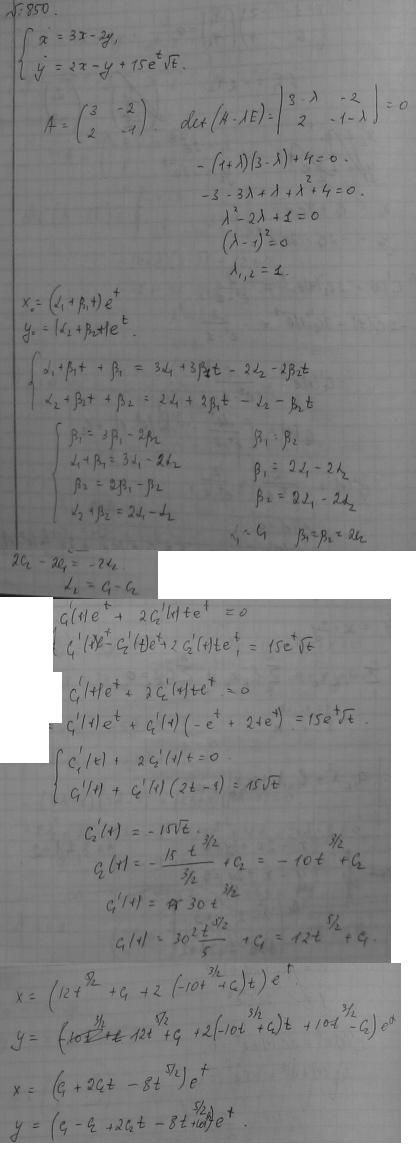 № 850.
{ ẋ = 3x - 2y,
{ ẏ = 2x - y + 15e^t √t.
A = (3 -2; 2 -1). det(A - λE) = |3-λ -2; 2 -1-λ| = 0
-(1+λ)(3-λ) + 4 = 0.
-3 - 3λ + λ + λ² + 4 = 0.
λ² - 2λ + 1 = 0
(λ - 1)² = 0
λ₁,₂ = 1.
x₀ = (α₁ + β₁t)e^t
y₀ = (α₂ + β₂t)e^t.
{ α₁ + β₁t + β₁ = 3α₁ + 3β₁t - 2α₂ - 2β₂t
{ α₂ + β₂t + β₂ = 2α₁ + 2β₁t - α₂ - β₂t
{ β₁ = 3β₁ - 2β₂ β₁ = β₂
α₁ + β₁ = 3α₁ - 2α₂ β₁ = 2α₁ - 2α₂
β₂ = 2β₁ - β₂ β₂ = 2α₁ - 2α₂
α₂ + β₂ = 2α₁ - α₂
α₁ = C₁ β₁ = β₂ = 2C₂
2C₂ - 2C₁ = -2α₂
α₂ = C₁ - C₂
C₁'(t)e^t + 2C₂'(t)te^t = 0
C₁'(t)e^t - C₂'(t)e^t + 2C₂'(t)te^t = 15e^t √t
C₁'(t)e^t + 2C₂'(t)te^t = 0
C₁'(t)e^t + C₂'(t)(-e^t + 2te^t) = 15e^t √t.
{ C₁'(t) + 2C₂'(t)t = 0
{ C₁'(t) + C₂'(t)(2t - 1) = 15√t
C₂'(t) = -15√t.
C₂(t) = - 15 t^{3/2} / (3/2) + C₂ = -10t^{3/2} + C₂
C₁'(t) = 30t^{3/2}
C₁(t) = 30 2t^{5/2}/5 + C₁ = 12t^{5/2} + C₁.
x = (12t^{5/2} + C₁ + 2(-10t^{3/2} + C₂)t)e^t.
y = (12t^{5/2} + C₁ + 2(-10t^{3/2} + C₂)t + 10t^{3/2} - C₂)e^t
x = (C₁ + 2C₂t - 8t^{5/2})e^t
y = (C₁ - C₂ + 2C₂t - 8t^{5/2} + 10t^{3/2})e^t.